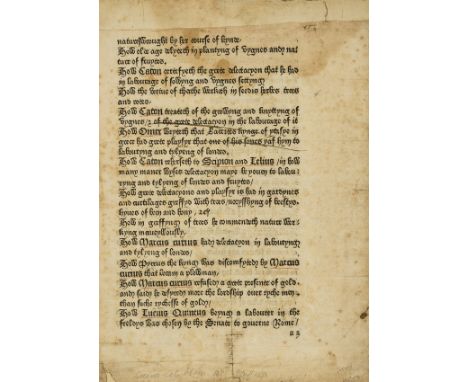 nature wrought by her course of kynde
How olde age deliteth in plantyng of vygnes and y na
ture of fruytes,
How Caton certefyeth the grete delectacyon that he had
in labourage of solyng and vygnes settyng
How the vertue of the erthe werkith in seedis herbes trees
and
How Caton treateth of the graffyng and knyttyng of
vygnes, & of the grete delectacyon in the labourage of it
How Omer wryteth that Laertes kynge of
in gret had grete playsyr that one of his sones yaf hym to
labouryng and tylyeng of londes,
How Caton reherseth to Scipion and Lelius, in how
many maner wyses delectacion maye be youen to labou
ryng and tylyeng of londes and fruytes,
How grete delectacyons and playsyr is had in gardynes
and curtilages garnysshed with trees, norysshyng of beestys,
hyves of been and hony, &c
How in graffyng of trees he commendeth nature wer
kyng merveyllously.
How Marcus curius had delectacyon in labouryng
and tylyeng of londes
How Pyrrus the kynge was discomfyted by Marcus
curius that becam a plowman,
How Marcus curius refused a grete presente of gold
and saide he desyred more the lordship over ryche men
than the rychesse of gold,
How Lucius Quincius beyng a labourer in the
feeldys was chosen by the Senate to governe Rome,